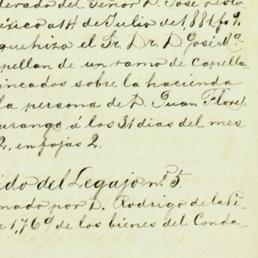 derado del Señor D. José
México a 14 de Julio de 1881 f 9.
que hizo el Sr. Dr. D José Ma.
apellan de un ramo de Capella
incados sobre la hacienda
la persona de D. Juan Flores
urango á los 31 dias del mes
2, en fojas 2.
ido del Legajo n.º 5.
mado por D. Rodrigo de la
e 1,769 de los bienes del Conda